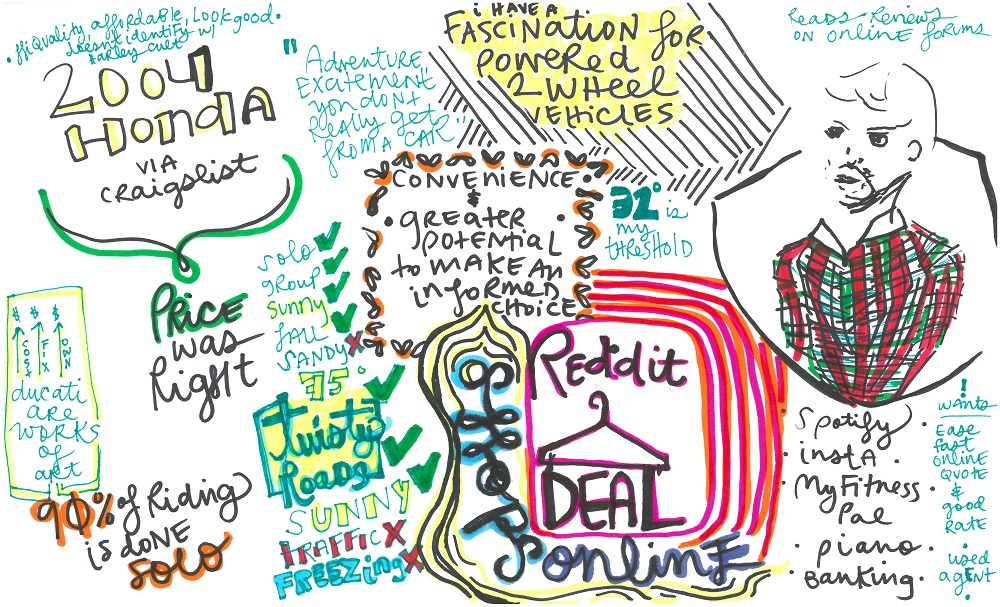 • HiQuality, affordable, Look good.
• doesn't identify w/
Harley cult
2004
HondA
VIA
craigslist
PRICE
was
Right
$ $ $
COST
FIX
OWN
ducati
ARE
WORKS
of
art
90% of Riding
is DONE
SOLO
"Adventure,
EXCITEMENT
you don't
Really get
from A CAR"
i HAVE A
FASCINATION for
Powered
2 WHeel
VEHICLES
CONVENIENCE
&
• greater •
potential
to MAKE An
informed
CHOICE
32° is
my
threshold
solo
group
sunny
fall
SANDY X
75°
twisty
Roads
SUNNY
TRAFFIC X
FREEZing X
SHOPS
online
Reddit
DEAL
Reads Reviews
ON Online forums
• Spotify
• insta •
• MyFitness •
Pal
• piano •
• BANKING •
!
WANTS
EASE
fast
online
QUOTE
&
good
RATE
•
used
agENT
•